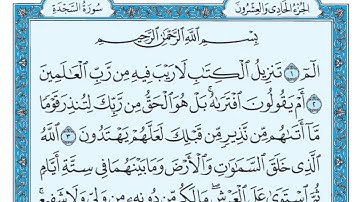 الجزء الحادي والعشرون
سورة السجدة
بِسْمِ اللَّهِ الرَّحْمَٰنِ الرَّحِيمِ
الٓمٓ ١ تَنزِيلُ الْكِتَٰبِ لَا رَيْبَ فِيهِ مِن رَّبِّ الْعَٰلَمِينَ
٢ أَمْ يَقُولُونَ افْتَرَىٰهُ بَلْ هُوَ الْحَقُّ مِن رَّبِّكَ لِتُنذِرَ قَوْمًا
مَّآ أَتَىٰهُم مِّن نَّذِيرٍ مِّن قَبْلِكَ لَعَلَّهُمْ يَهْتَدُونَ ٣ اللَّهُ
الَّذِي خَلَقَ السَّمَٰوَٰتِ وَالْأَرْضَ وَمَا بَيْنَهُمَا فِي سِتَّةِ أَيَّامٍ
ثُمَّ اسْتَوَىٰ عَلَى الْعَرْشِ مَا لَكُم مِّن دُونِهِ مِن وَلِيٍّ وَلَا شَفِيعٍ